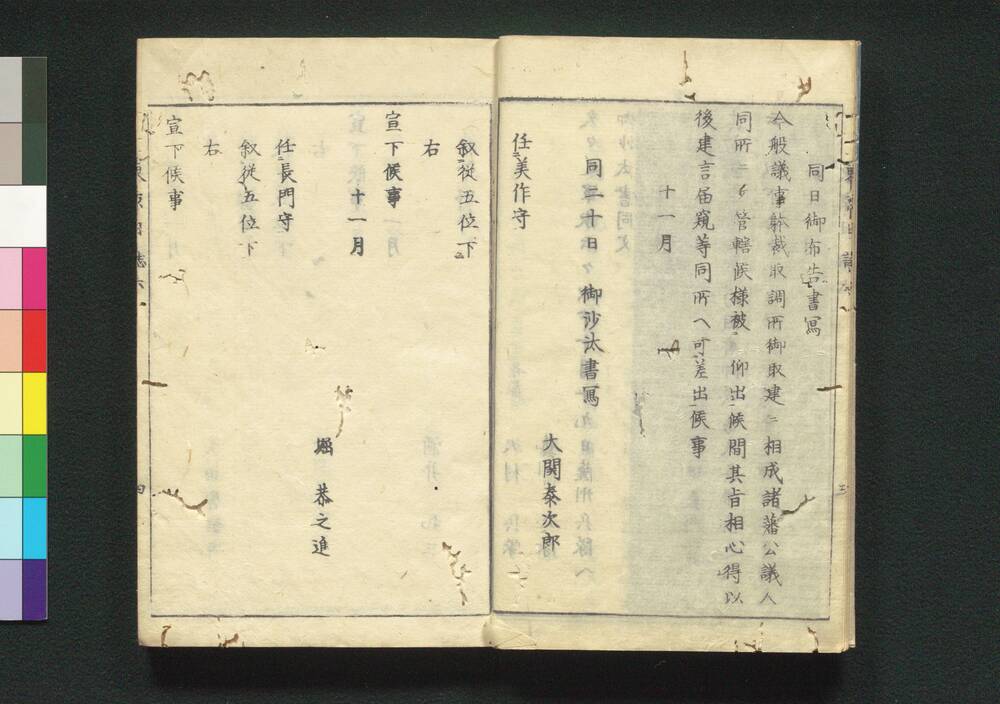 同日御布告書寫
今般議事躰裁取調所御取建ニ相成諸藩公議人
同所ニ而管轄候様被 仰出候間其旨相心得以
後建言届窺等同所ヘ可差出候事
十一月
同二十日御沙汰書寫
大関泰次郎
任美作守
叙従五位下
右
宣下候事
十一月
堀 恭之進
任長門守
叙従五位下
右
宣下候事
四